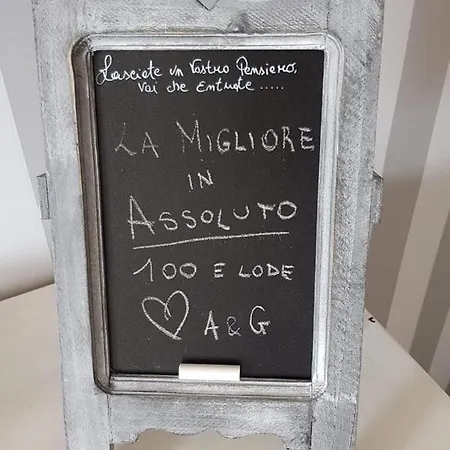 Lasciate un Vostro Pensiero,
Voi che Entrate .....
LA MIGLIORE
IN
ASSOLUTO
100 E LODE
A & G